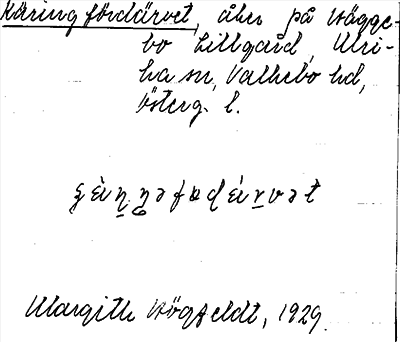 Käringfördärvet, åker på Hägge-
bo Lillgård, Ulri-
ka sn, Valkebo hd,
Österg. l.
Margith Högfeldt, 1929.